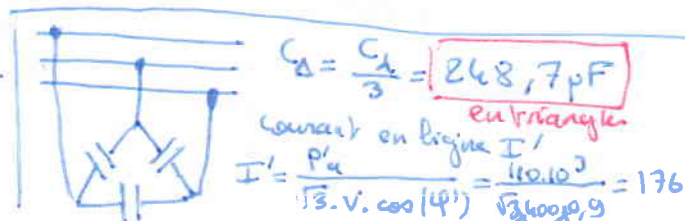 C_Δ = C_λ / 3 = 248,7 µF
en triangle
courant en ligne I'
I' = P'a / √3 . V . cos(φ') = 110.10³ / √3.400.0,9 = 176